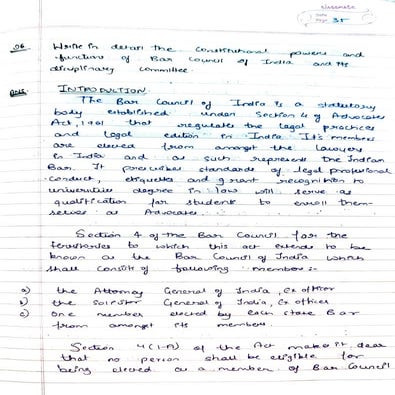 classmate
Date
Page 35
Q6. Write in detail the constitutional powers and
functions of Bar Council of India and its
disciplinary committee.
Ans. INTRODUCTION
The Bar Council of India is a statutory
body established under Section 4 of Advocates
Act, 1961 that regulates the legal practices
and legal edition in India. It's members
are elected from amongst the lawyers
in India and as such represents the Indian
Bar. It prescribes standards of legal professional
conduct, etiquettes and grant recognition to
universities degree in law will serve as
qualification for students to enroll them-
selves as Advocates.
Section 4 of the Bar Council for the
territories to which this act extends to be
known as the Bar Council of India which
shall consists of following members:-
a) the Attorney General of India, Ex officio
b) the Solicitor General of India, Ex officio
c) One member elected by each state Bar
from amongst its members.
Section 4(1-A) of the Act makes it clear
that no person shall be eligible for
being elected as a member of Bar Council